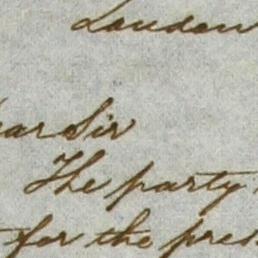 London
ear Sir
The party
for the pres